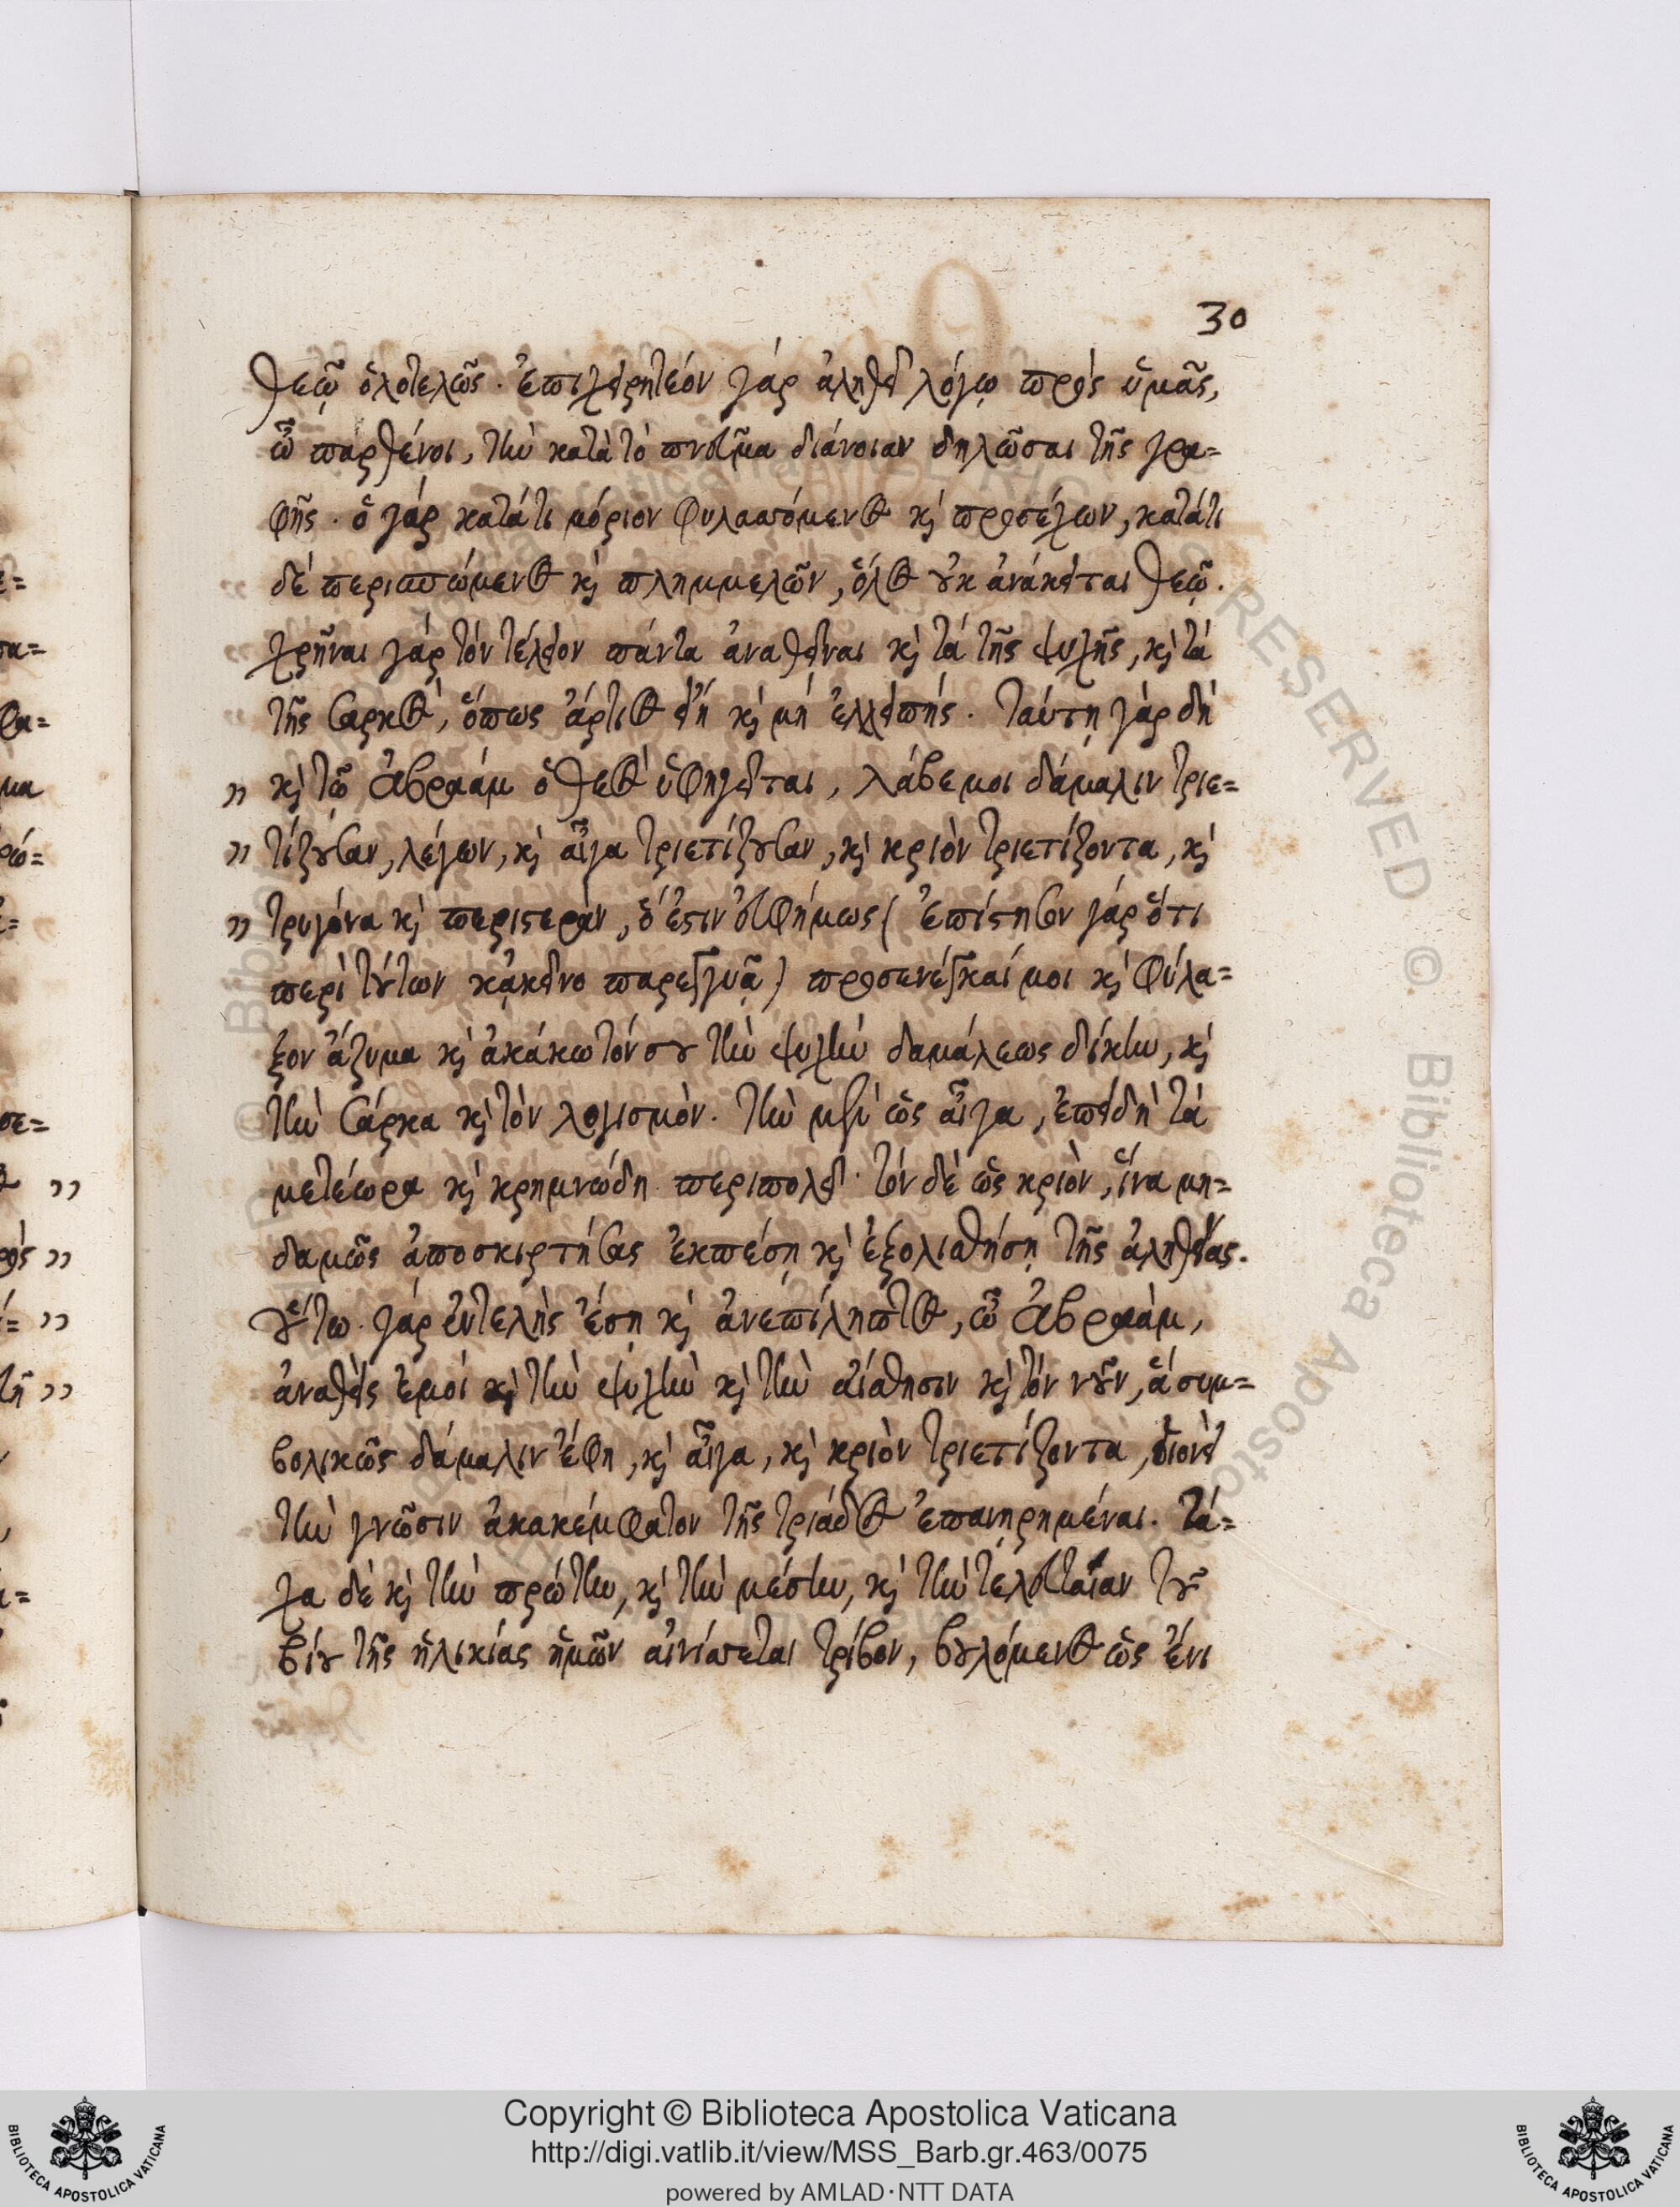 30
θεῷ ὁλοτελῶς. ἐπιχειρητέον γάρ ἀληθεῖ λόγῳ πρὸς ὑμᾶς,
ὦ παρθένοι, τὴν κατὰ τὸ πνεῦμα διάνοιαν δηλῶσαι τῆς γρα=
φῆς. ὁ γάρ κατάτι μόριον φυλαττόμενος κὶ προσέχων, κατάτι
δέ περισπώμενος κὶ πλημμελῶν, ὅλος οὐκ ἀνάκειται θεῷ.
χρῆναι γάρ τόν τέλειον πάντα ἀναθεῖναι κὶ τά τῆς ψυχῆς, κὶ τά
τῆς σαρκός, ὅπως ἄρτιος εἴη κὶ μή ἐλλειπής. ταύτῃ γάρ δή
" κὶ τῷ ἀβραάμ ὁ θεός ὑφηγεῖται, λάβε μοι δάμαλιν τριε=
" τίζουσαν, λέγων, κὶ αἶγα τριετίζουσαν, κὶ κριὸν τριετίζοντα, κὶ
" τρυγόνα κὶ περιστεράν, ὅ ἐστιν εὐφήμως (ἐπίστησον γάρ ὅτι
περὶ τούτων κᾀκεῖνο παρεγγυᾷ) προσενέγκαί μοι κὶ φύλα=
ξον ἄζυμα κὶ ἀκάκωτόν σου τὴν ψυχὴν δαμάλεως δίκην, κὶ
τὴν σάρκα κὶ τὸν λογισμὸν. τὴν μὲν ὡς αἶγα, ἐπειδὴ τά
μετέωρα κὶ κρημνώδη περιπολεῖ· τόν δὲ ὡς κριὸν, ἵνα μη=
δαμῶς ἀποσκιρτήσας ἐκπέσῃ κὶ ἐξολισθήσῃ τῆς ἀληθείας.
οὕτω γάρ ἐντελὴς ἔσῃ κὶ ἀνεπίληπτος, ὦ ἀβραὰμ,
ἀναθεὶς ἐμοί κὶ τὴν ψυχὴν κὶ τὴν αἴσθησιν κὶ τόν νοῦν, ἃ συμ=
βολικῶς δάμαλιν ἔφη, κὶ αἶγα, κὶ κριὸν τριετίζοντα, οἱονεὶ
τὴν γνῶσιν ἀκακέμφατον τῆς τριάδος ἐπανῃρημέναι. τά=
χα δὲ κὶ τὴν πρώτην, κὶ τὴν μέσην, κὶ τὴν τελευταίαν τοῦ
βίου τῆς ἡλικίας ἡμῶν αἰνίττεται τρίβον, βουλόμενος ὡς ἔνι
Copyright © Biblioteca Apostolica Vaticana
http://digi.vatlib.it/view/MSS_Barb.gr.463/0075
powered by AMLAD·NTT DATA
BIBLIOTECA APOSTOLICA VATICANA
BIBLIOTECA APOSTOLICA VATICANA